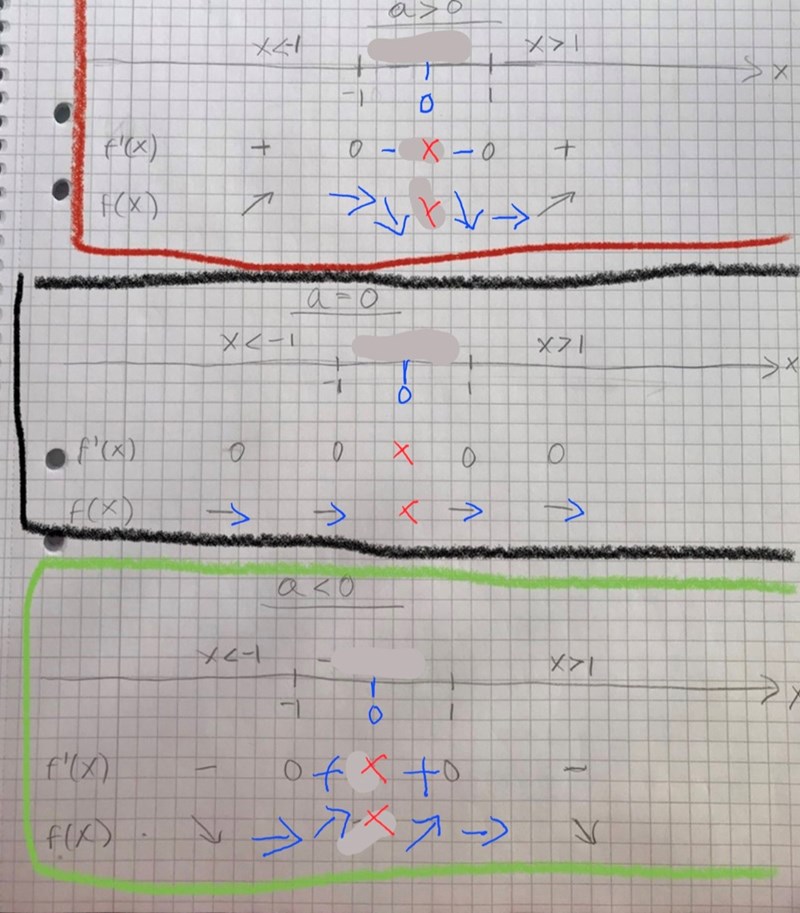 a > 0
x<-1 x>1
x
-1 0 1
f'(x) + 0 - x - 0 +
f(x) ↗ → ↘ x ↘ → ↗
a = 0
x < -1 x>1
x
-1 0 1
f'(x) 0 0 x 0 0
f(x) → → x → →
a < 0
x<-1 - x>1
-1 0 1
f'(x) - 0 + x + 0 -
f(x) ↘ → ↗ x ↗ → ↘